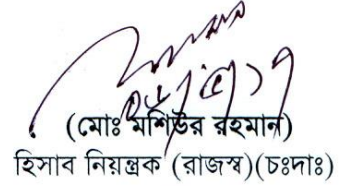 (মোঃ মশিউর রহমান)
হিসাব নিয়ন্ত্রক (রাজস্ব)(চঃদাঃ)